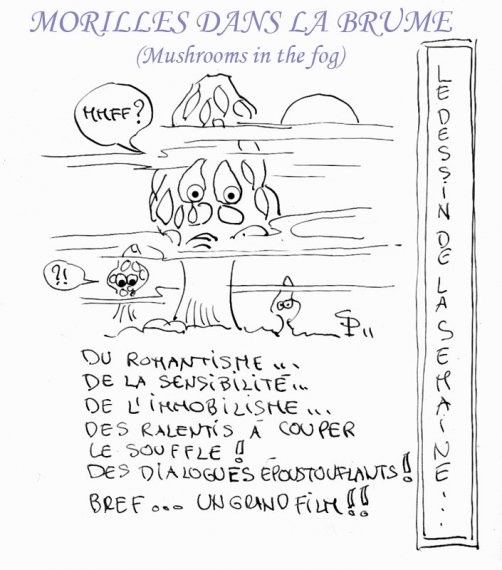 MORILLES DANS LA BRUME
(Mushrooms in the fog)
HHFF?
?!
DU ROMANTISME...
DE LA SENSIBILITÉ...
DE L'IMMOBILISME...
DES RALENTIS À COUPER
LE SOUFFLE!
DES DIALOGUES EPOUSTOUFLANTS!
BREF... UN GRAND FILM!!
LE DESSIN DE LA SEMAINE...